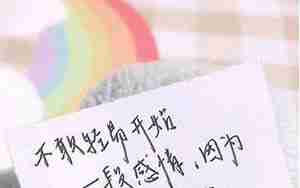 不敢轻易开始
一段感情，因为